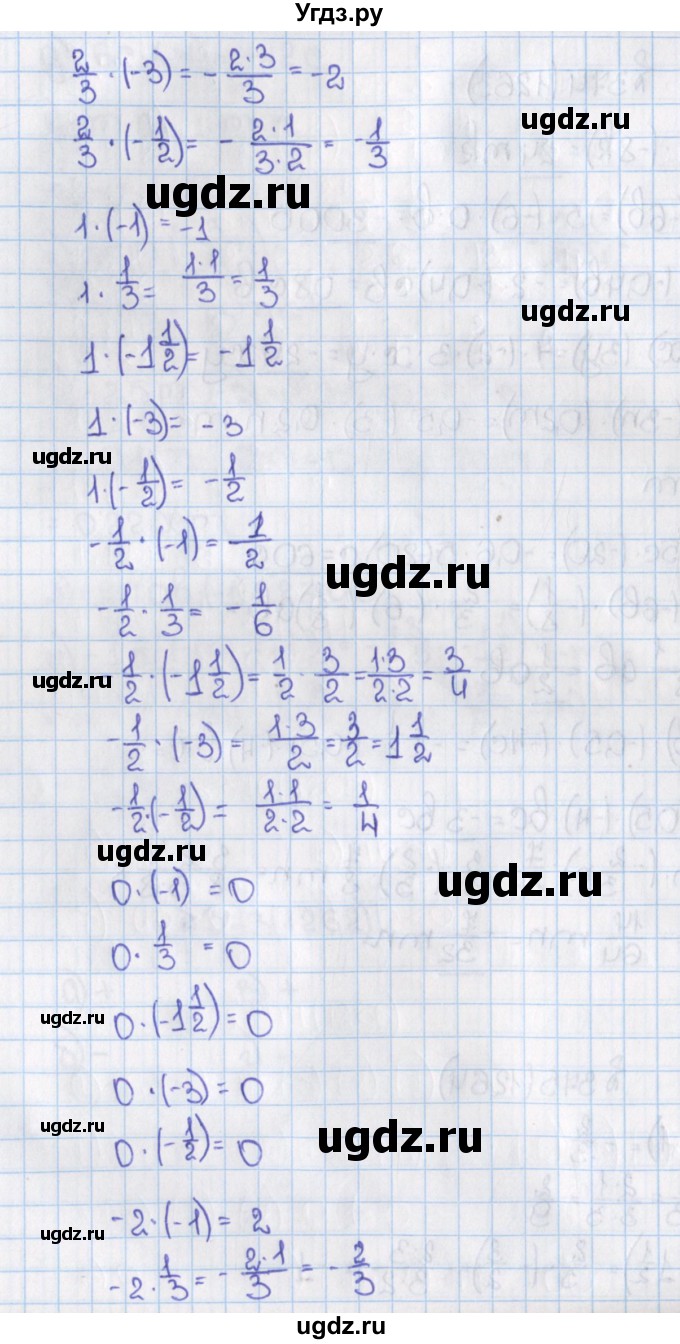 Угдз.ру
2/3 · (-3) = - 2·3/3 = -2
ugdz.ru
2/3 · (-1/2) = - 2·1/3·2 = -1/3
ugdz.ru
1 · (-1) = -1
1 · 1/3 = 1·1/3 = 1/3
ugdz.ru
1 · (-1 1/2) = -1 1/2
1 · (-3) = -3
ugdz.ru
1 · (-1/2) = -1/2
-1/2 · (-1) = -1/2
ugdz.ru
-1/2 · 1/3 = -1/6
ugdz.ru
1/2 · (-1 1/2) = 1/2 · 3/2 = 1·3/2·2 = 3/4
-1/2 · (-3) = 1·3/2 = 3/2 = 1 1/2
-1/2 · (-1/2) = 1·1/2·2 = 1/4
ugdz.ru
0 · (-1) = 0
ugdz.ru
0 · 1/3 = 0
ugdz.ru
0 · (-1 1/2) = 0
0 · (-3) = 0
ugdz.ru
0 · (-1/2) = 0
ugdz.ru
-2 · (-1) = 2
ugdz.ru
-2 · 1/3 = - 2·1/3 = -2/3